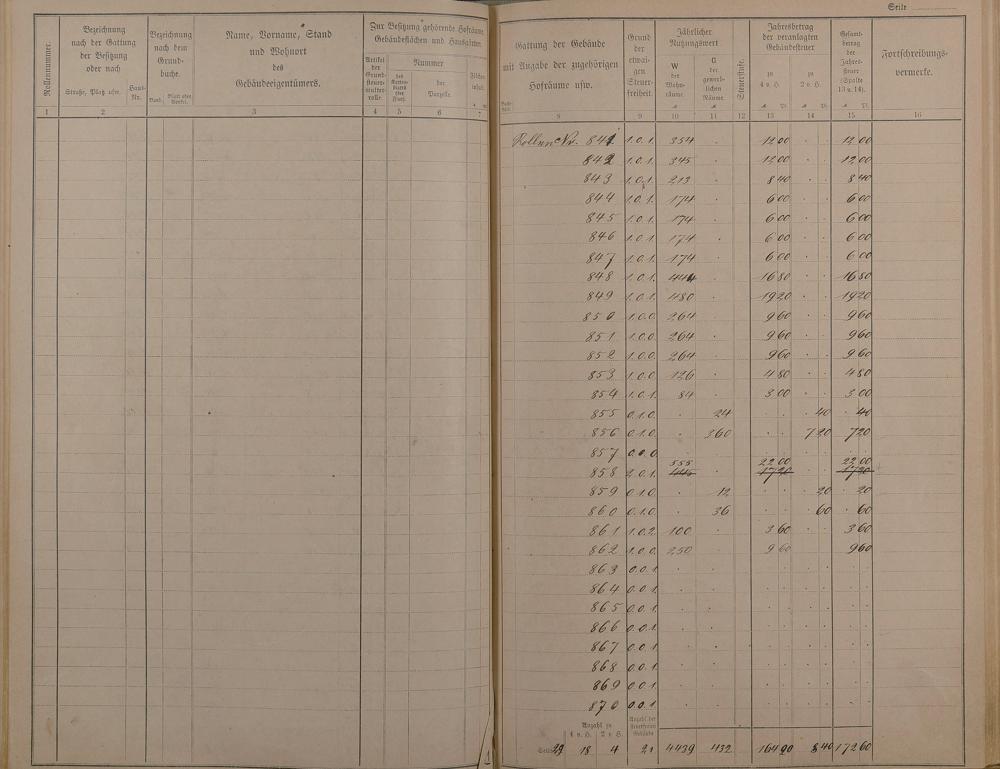 Seite
Rollennummer.
Bezeichnung
nach der Gattung
der Besitzung
oder nach
Straße, Platz usw.
Haus-
Nr.
Bezeichnung
nach dem
Grund-
buche.
Band.
Blatt oder
Artikel.
Name, Vorname, Stand
und Wohnort
des
Gebäudeeigentümers.
Zur Besitzung gehörende Hofräume,
Gebäudeflächen und Hausgärten.
Artikel
der
Grund-
steuer-
mutter-
rolle.
Nummer
des
Karten-
blatts
(der
Flur).
der
Parzelle.
Flächen-
inhalt.
Gattung der Gebäude
mit Angabe der zugehörigen
Hofräume usw.
Grund
der
etwai-
gen
Steuer-
freiheit.
Jährlicher
Nutzungswert
W
der
Wohn-
räume
G
der
gewerb-
lichen
Räume.
Steuerstufe.
Jahresbetrag
der veranlagten
Gebäudesteuer
zu
4 v. H.
zu
2 v. H.
Gesamt-
betrag
der
Jahres-
steuer
(Spalte
13 u. 14).
Fortschreibungs-
vermerke.
1 2 3 4 5 6 7 8 9 10 11 12 13 14 15 16
Rollen Nr. 841 1.0.1. 354 . 12 00 . . 12 00
842 1.0.1. 345 . 12 00 . . 12 00
843 1.0.1. 213 . 8 40 . . 8 40
844 1.0.1. 174 . 6 00 . . 6 00
845 1.0.1. 174 . 6 00 . . 6 00
846 1.0.1. 174 . 6 00 . . 6 00
847 1.0.1. 174 . 6 00 . . 6 00
848 1.0.1. 444 . 16 80 . . 16 80
849 1.0.1. 480 . 19 20 . . 19 20
850 1.0.0. 264 . 9 60 . . 9 60
851 1.0.0. 264 . 9 60 . . 9 60
852 1.0.0. 264 . 9 60 . . 9 60
853 1.0.0. 126 . 4 80 . . 4 80
854 1.0.1. 84 . 3 00 . . 3 00
855 0.1.0. . 24 . . . 40 . 40
856 0.1.0. . 360 . . 7 20 7 20
857 0.0.0
555 22 00 22 00
858 2.0.1. 445 . 17 20 . . 17 20
859 0.1.0. . 12 . . . 20 . 20
860 0.1.0. . 36 . . . 60 . 60
861 1.0.2. 100 . 3 60 . . 3 60
862 1.0.0. 250 . 9 60 . . 9 60
863 0.0.1. . . . . . . . .
864 0.0.1. . . . . . . . .
865 0.0.1. . . . . . . . .
866 0.0.1. . . . . . . . .
867 0.0.1. . . . . . . . .
868 0.0.1. . . . . . . . .
869 0.0.1. . . . . . . . .
870 0.0.1. . . . . . . . .
Anzahl zu
4 v. H. 2 v. H.
Anzahl der
steuerfreien
Gebäude
Seite 29 18 4 21 4439 432 164 90 8 40 172 60